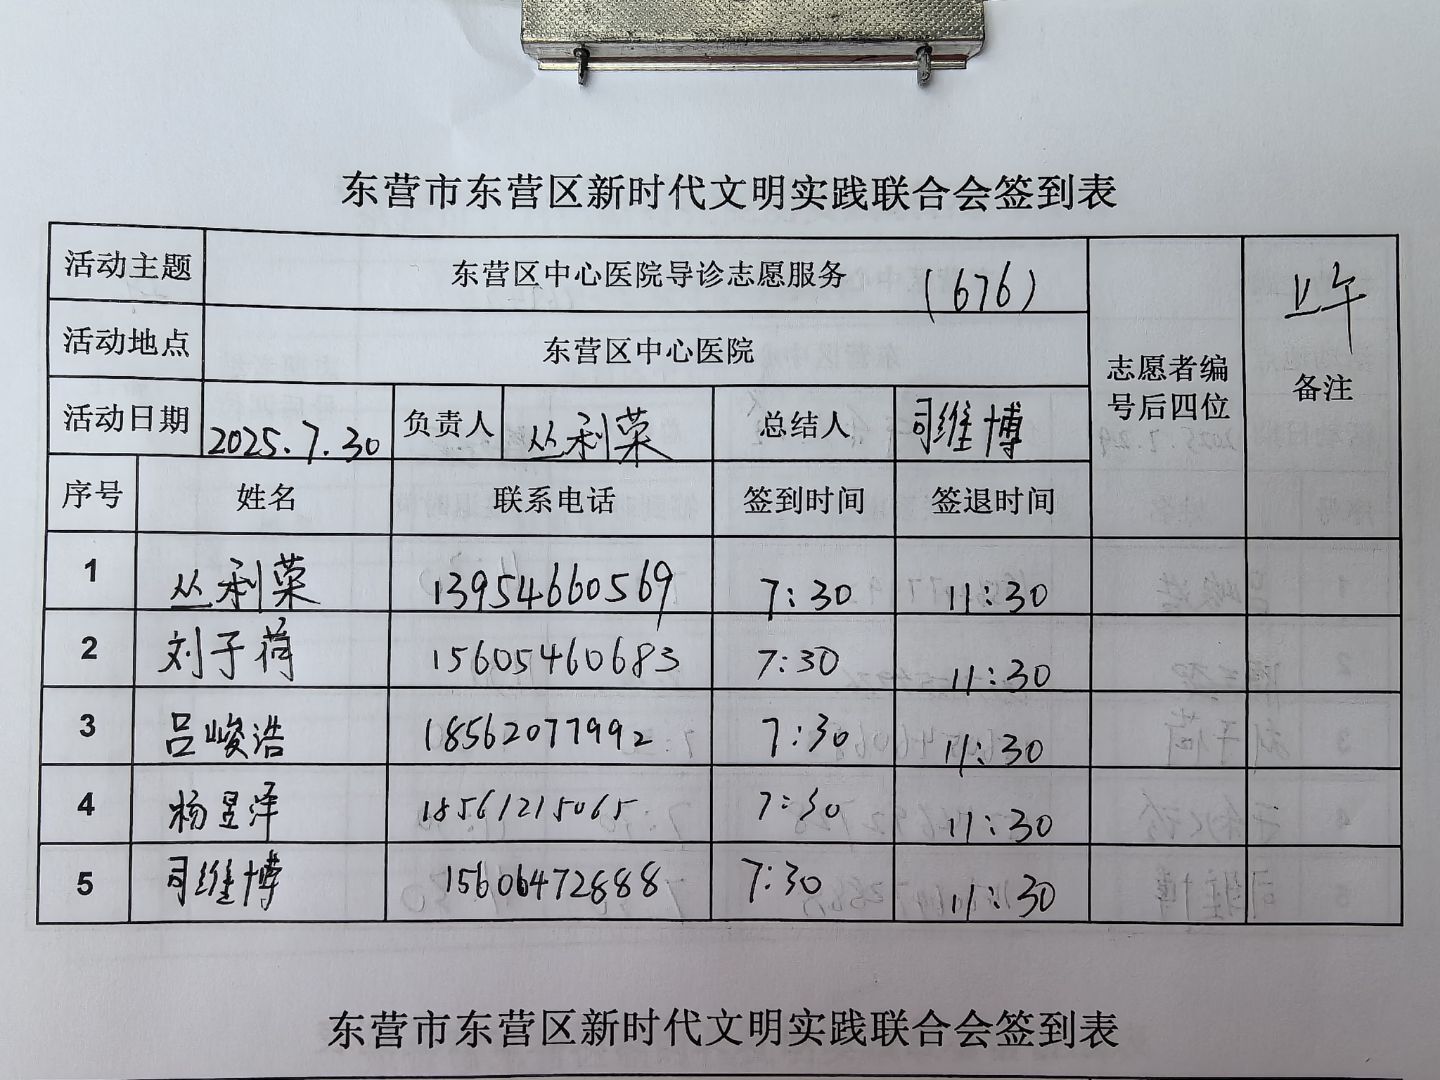 东营市东营区新时代文明实践联合会签到表
活动主题 东营区中心医院导诊志愿服务 (676) 志愿者编号后四位 上午 备注
活动地点 东营区中心医院
活动日期 2025.7.30 负责人 丛利荣 总结人 司维博
序号 姓名 联系电话 签到时间 签退时间
1 丛利荣 13954660569 7:30 11:30
2 刘子荷 15605460683 7:30 11:30
3 吕峻浩 18562077992 7:30 11:30
4 杨昱泽 18561215065 7:30 11:30
5 司维博 15606472888 7:30 11:30
东营市东营区新时代文明实践联合会签到表